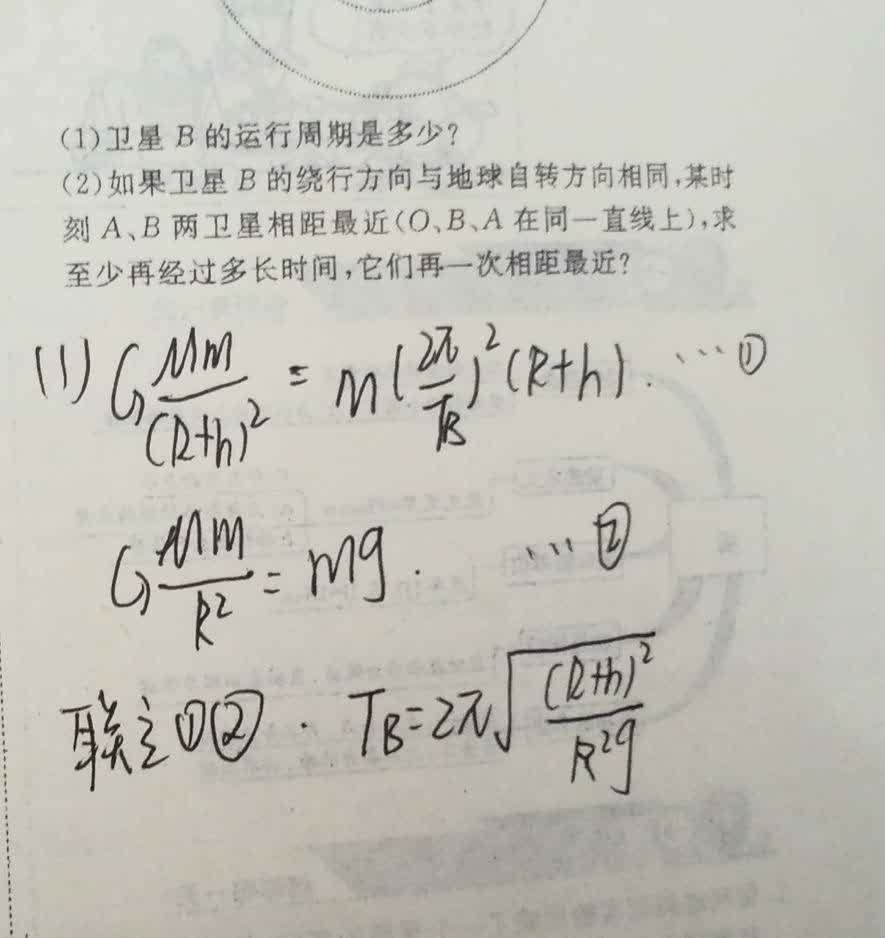 (1)卫星 B 的运行周期是多少?
(2)如果卫星 B 的绕行方向与地球自转方向相同,某时
刻 A、B 两卫星相距最近(O、B、A 在同一直线上),求
至少再经过多长时间,它们再一次相距最近?
(1) G\frac{Mm}{(R+h)^2} = m(\frac{2π}{T_B})^2(R+h). …①
G\frac{Mm}{R^2} = mg. …②
联立①②. T_B=2π\sqrt{\frac{(R+h)^2}{R^2g}}